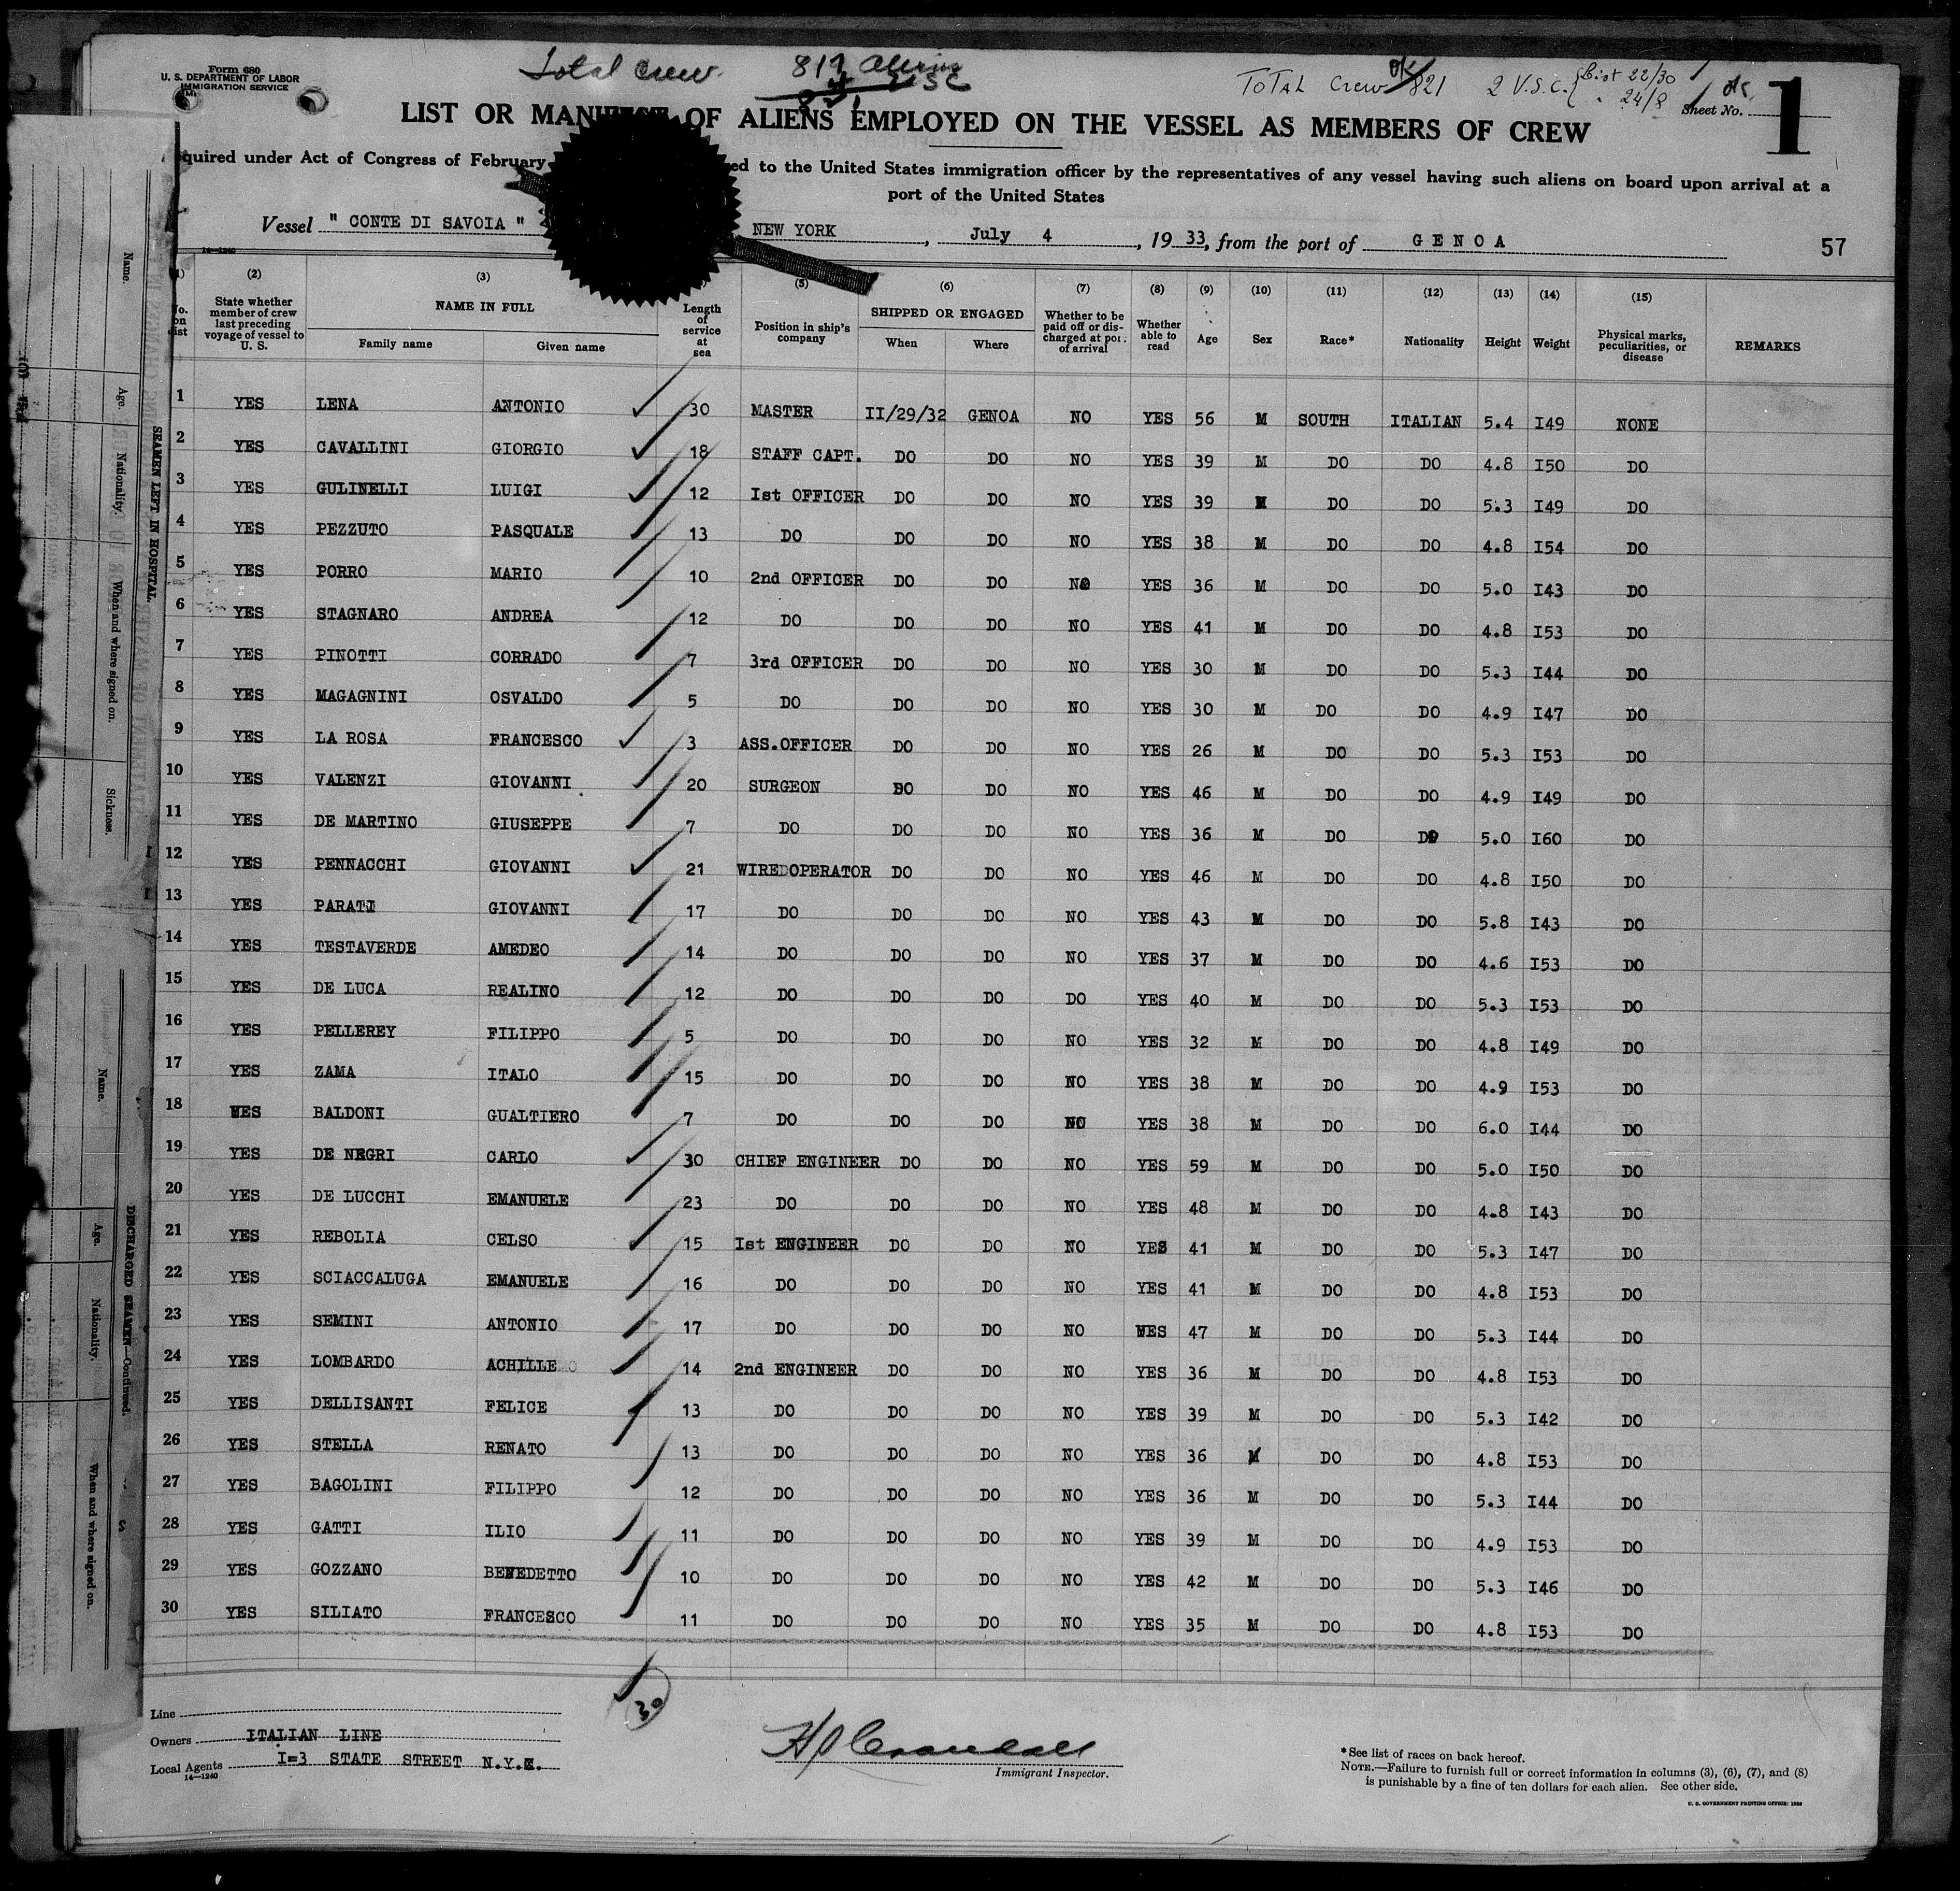 Form 680
U. S. DEPARTMENT OF LABOR
IMMIGRATION SERVICE
Total Crew. 817 Aliens
Total Crew 821 2 V.S.C. List 22/30
24/8
ok
Sheet No. 1
LIST OR MANIFEST OF ALIENS EMPLOYED ON THE VESSEL AS MEMBERS OF CREW
quired under Act of Congress of February ed to the United States immigration officer by the representatives of any vessel having such aliens on board upon arrival at a
port of the United States
Vessel " CONTE DI SAVOIA " NEW YORK , July 4 , 19 33, from the port of GENOA 57
14—1240
(1) (2) (3) (5) (6) (7) (8) (9) (10) (11) (12) (13) (14) (15)
No. on list State whether member of crew last preceding voyage of vessel to U. S. NAME IN FULL Family name Given name Length of service at sea Position in ship's company SHIPPED OR ENGAGED When Where Whether to be paid off or discharged at port of arrival Whether able to read Age Sex Race* Nationality Height Weight Physical marks, peculiarities, or disease REMARKS
1 YES LENA ANTONIO 30 MASTER II/29/32 GENOA NO YES 56 M SOUTH ITALIAN 5.4 I49 NONE
2 YES CAVALLINI GIORGIO 18 STAFF CAPT. DO DO NO YES 39 M DO DO 4.8 I50 DO
3 YES GULINELLI LUIGI 12 Ist OFFICER DO DO NO YES 39 M DO DO 5.3 I49 DO
4 YES PEZZUTO PASQUALE 13 DO DO DO NO YES 38 M DO DO 4.8 I54 DO
5 YES PORRO MARIO 10 2nd OFFICER DO DO NO YES 36 M DO DO 5.0 I43 DO
6 YES STAGNARO ANDREA 12 DO DO DO NO YES 41 M DO DO 4.8 I53 DO
7 YES PINOTTI CORRADO 7 3rd OFFICER DO DO NO YES 30 M DO DO 5.3 I44 DO
8 YES MAGAGNINI OSVALDO 5 DO DO DO NO YES 30 M DO DO 4.9 I47 DO
9 YES LA ROSA FRANCESCO 3 ASS.OFFICER DO DO NO YES 26 M DO DO 5.3 I53 DO
10 YES VALENZI GIOVANNI 20 SURGEON DO DO NO YES 46 M DO DO 4.9 I49 DO
11 YES DE MARTINO GIUSEPPE 7 DO DO DO NO YES 36 M DO DO 5.0 I60 DO
12 YES PENNACCHI GIOVANNI 21 WIREDOPERATOR DO DO NO YES 46 M DO DO 4.8 I50 DO
13 YES PARATI GIOVANNI 17 DO DO DO NO YES 43 M DO DO 5.8 I43 DO
14 YES TESTAVERDE AMEDEO 14 DO DO DO NO YES 37 M DO DO 4.6 I53 DO
15 YES DE LUCA REALINO 12 DO DO DO DO YES 40 M DO DO 5.3 I53 DO
16 YES PELLEREY FILIPPO 5 DO DO DO NO YES 32 M DO DO 4.8 I49 DO
17 YES ZAMA ITALO 15 DO DO DO NO YES 38 M DO DO 4.9 I53 DO
18 YES BALDONI GUALTIERO 7 DO DO DO NO YES 38 M DO DO 6.0 I44 DO
19 YES DE NEGRI CARLO 30 CHIEF ENGINEER DO DO NO YES 59 M DO DO 5.0 I50 DO
20 YES DE LUCCHI EMANUELE 23 DO DO DO NO YES 48 M DO DO 4.8 I43 DO
21 YES REBOLIA CELSO 15 Ist ENGINEER DO DO NO YES 41 M DO DO 5.3 I47 DO
22 YES SCIACCALUGA EMANUELE 16 DO DO DO NO YES 41 M DO DO 4.8 I53 DO
23 YES SEMINI ANTONIO 17 DO DO DO NO YES 47 M DO DO 5.3 I44 DO
24 YES LOMBARDO ACHILLE 14 2nd ENGINEER DO DO NO YES 36 M DO DO 4.8 I53 DO
25 YES DELLISANTI FELICE 13 DO DO DO NO YES 39 M DO DO 5.3 I42 DO
26 YES STELLA RENATO 13 DO DO DO NO YES 36 M DO DO 4.8 I53 DO
27 YES BAGOLINI FILIPPO 12 DO DO DO NO YES 36 M DO DO 5.3 I44 DO
28 YES GATTI ILIO 11 DO DO DO NO YES 39 M DO DO 4.9 I53 DO
29 YES GOZZANO BENEDETTO 10 DO DO DO NO YES 42 M DO DO 5.3 I46 DO
30 YES SILIATO FRANCESCO 11 DO DO DO NO YES 35 M DO DO 4.8 I53 DO
30
Line
Owners ITALIAN LINE
Local Agents I=3 STATE STREET N.Y.
14—1240
Immigrant Inspector.
*See list of races on back hereof.
NOTE.—Failure to furnish full or correct information in columns (3), (6), (7), and (8)
is punishable by a fine of ten dollars for each alien. See other side.
U. S. GOVERNMENT PRINTING OFFICE: 1930
SEAMEN LEFT IN HOSPITAL
Name. Age. Nationality. When and where signed on. Sickness.
DISCHARGED SEAMEN—Continued.
Name. Age. Nationality. When and where signed on.